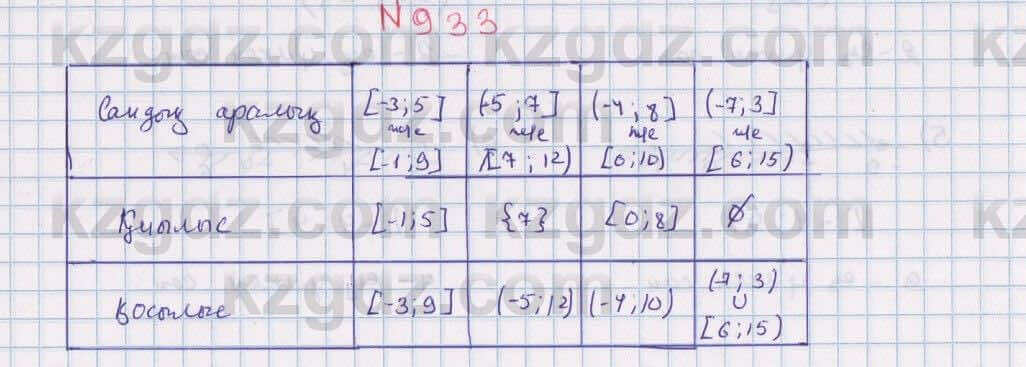 N 933
Сандық аралық [-3;5] (-5;7] (-4;8] (-7;3]
және және және және
[-1;9] [7;12) [0;10) [6;15)
Қиылыс [-1;5] {7} [0;8] ∅
Қосылыс [-3;9] (-5;12) (-4;10) (-7;3)
∪
[6;15)
kzgdz.com kzgdz.com
kzgdz.com
kzgdz.com kzgdz.com
kzgdz.com